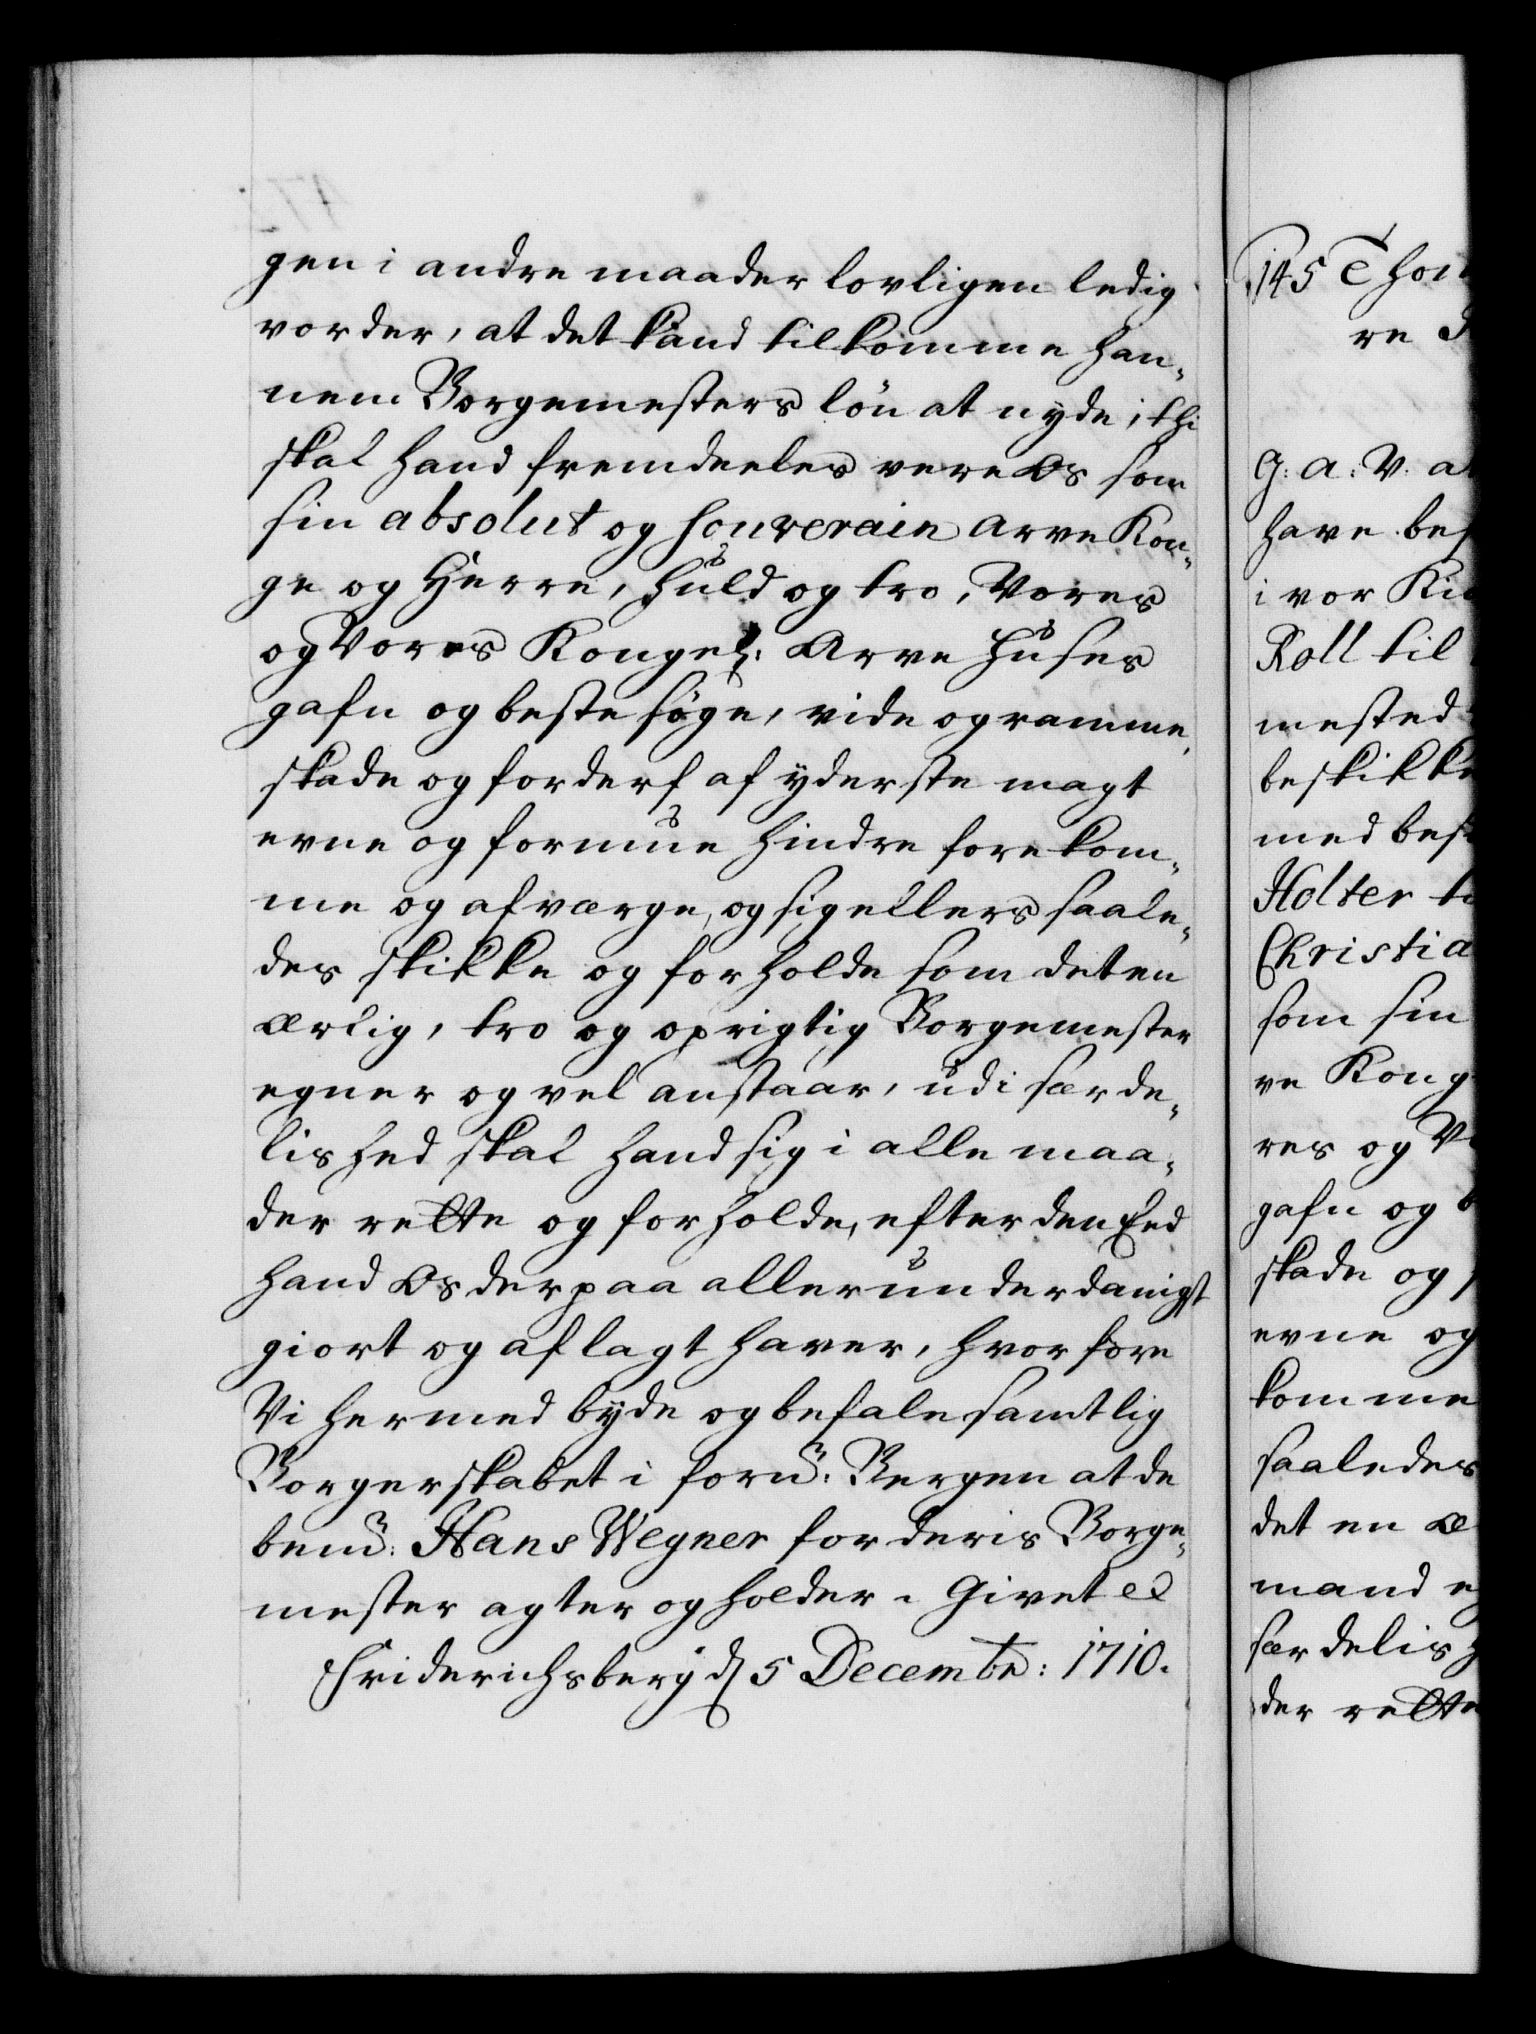 gen i andre maader lovligen ledig
vorder, at det kand tilkomme han„
nem Borgemesters lön at nyde; thi
skal hand fremdeeles vere Os som
sin absolut og souverain Arve Kon„
ge og Herre, huld og tro, Vores
og Vores Kongel: Arve Huses
gafn og beste søge, vide og ramme,
skade og forderf af yderste magt
evne og formue hindre forekom„
me og afværge, og sig ellers saale„
des skikke og forholde som det en
ærlig, tro og oprigtig Borgemester
egner og vel anstaar, udi særde„
lished skal hand sig i alle maa„
der rette og forholde, efter den Eed
hand Os derpaa allerunderdanigst
giort og aflagt haver, hvorfore
Vi hermed byde og befale samtlig
Borgerskabet i forn: Bergen at de
bem: Hans Wegner for deris Borge„
mester agter og holder. Givet
Friderichsberg d 5 Decembr: 1710.
145 Thom
re
G: A: V: a
have bes
i vor Ki
Roll til
mested
beskikke
med best
Holter
Christia
som sin
ve Kong
res og V
gafn og b
skade og
evne og
komme
saaledes
det en æ
mand eg
særdelish
der rette